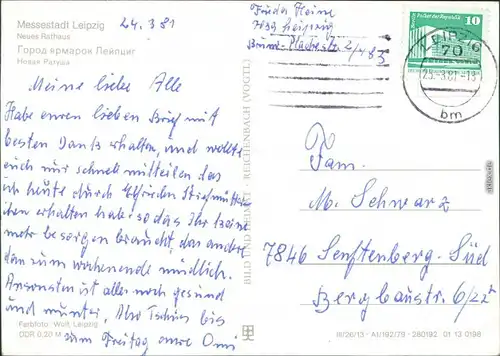 Messestadt Leipzig
Neues Rathaus
Город ярмарок Лейпциг
Новая Ратуша
24.3.81
Frieda Heine
7039 Leipzig
2/483
10
LEIPZIG
70
25.-3.81-18
bm
Meine liebe Alle
Habe euren lieben Brief mit
besten Dank erhalten, und wollte
euch nur schnell mitteilen das
ich heute durch Elfrieden Stiefmütter-
chen erhalten hab. so das Ihr keine
mehr besorgen braucht, das andere
dan zum wochenende mündlich.
Ansonsten ist alles noch gesund
und munter. Also Tschüs bis
zum Freitag eure Omi
BILD UND HEIMAT · REICHENBACH (VOGTL)
Fam.
M. Schwarz
7846 Senftenberg-Süd
Berglaustr. 6/22
Farbfoto: Wolf, Leipzig
DDR 0,20 M
III/26/13 · A1/192/79 · 280192 01 13 0198